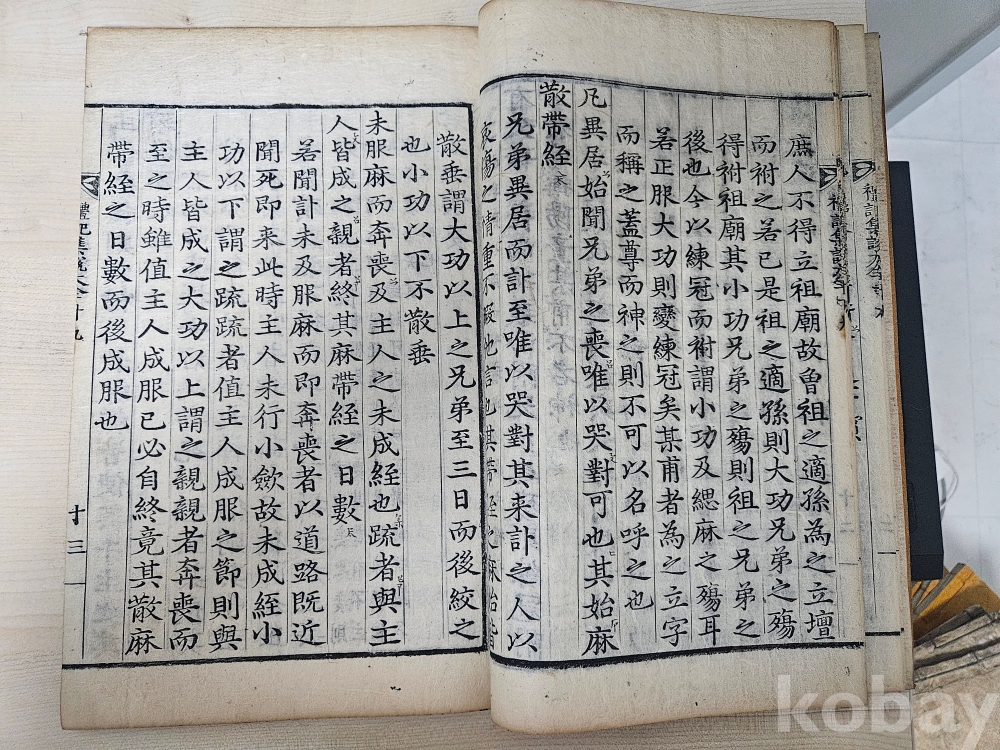 庶人不得立祖廟故曾祖之適孫為之立壇
而祔之若已是祖之適孫則大功兄弟之殤
得祔祖廟其小功兄弟之殤則祖之兄弟之
後也今以練冠而祔謂小功及緦麻之殤耳
若正服大功則變練冠矣某甫者為之立字
而稱之蓋尊而神之則不可以名呼之也
凡異居始聞兄弟之喪唯以哭對可也其始麻
散帶絰
兄弟異居而訃至唯以哭對其来訃之人以
哀傷之情重不暇他言也其帶絰之麻始皆
散垂謂大功以上之兄弟至三日而後絞之
也小功以下不散垂
未服麻而奔喪及主人之未成絰也疏者與主
人皆成之親者終其麻帶絰之日數
若聞訃未及服麻而即奔喪者以道路既近
聞死即来此時主人未行小斂故未成絰小
功以下謂之疏疏者值主人成服之節則與
主人皆成之大功以上謂之親親者奔喪而
至之時雖值主人成服已必自終竟其散麻
帶絰之日數而後成服也
禮記集說大全卷之十九
十三
kobay